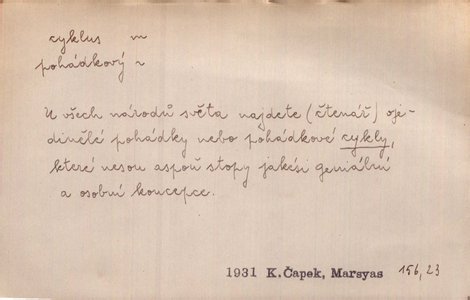 cyklus m
pohádkový ~
U všech národů světa najdete (čtenář) oje-
dinělé pohádky nebo pohádkové cykly,
které nesou aspoň stopy jakési geniální
a osobní koncepce.
1931 K. Čapek, Marsyas 156, 23